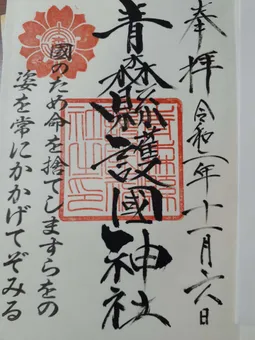 奉拝
令和一年十一月六日
青森縣護國神社
國のため命を捨てしますらをの
姿を常にかかげてぞみる